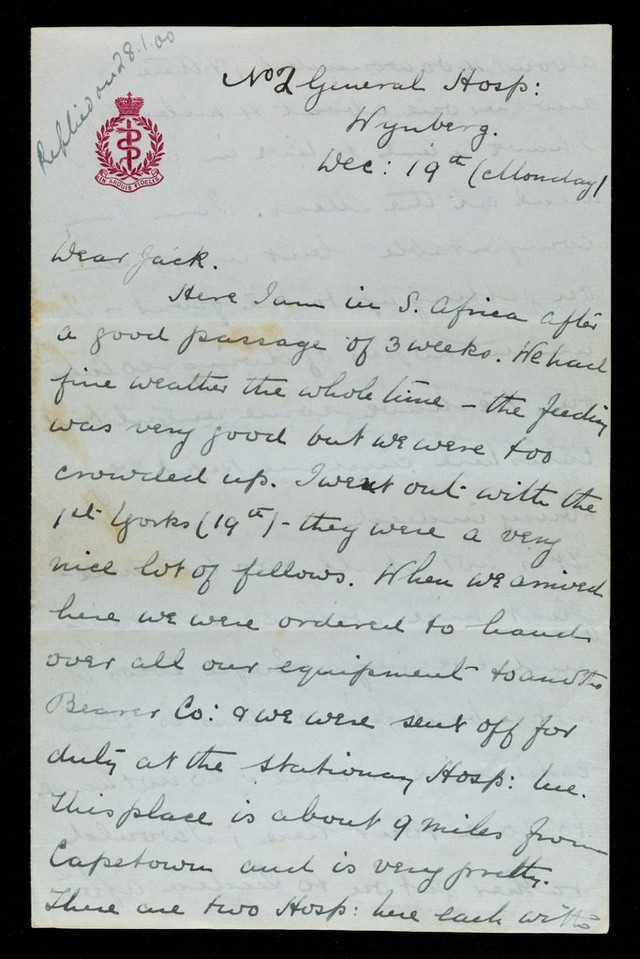 Replied on 28.1.00
No 2 General Hosp:
Wynberg.
Dec: 19th (Monday)
IN ARDUIS FIDELIS
Dear Jack.
Here I am in S. Africa after
a good passage of 3 weeks. We had
fine weather the whole time – the feeding
was very good but we were too
crowded up. I went out with the
1st Yorks (19th) – they were a very
nice lot of fellows. When we arrived
here we were ordered to hand
over all our equipment to another
Bearer Co: & we were sent off for
duty at the Stationary Hosp: here.
This place is about 9 miles from
Capetown and is very pretty.
There are two Hosp: here each with